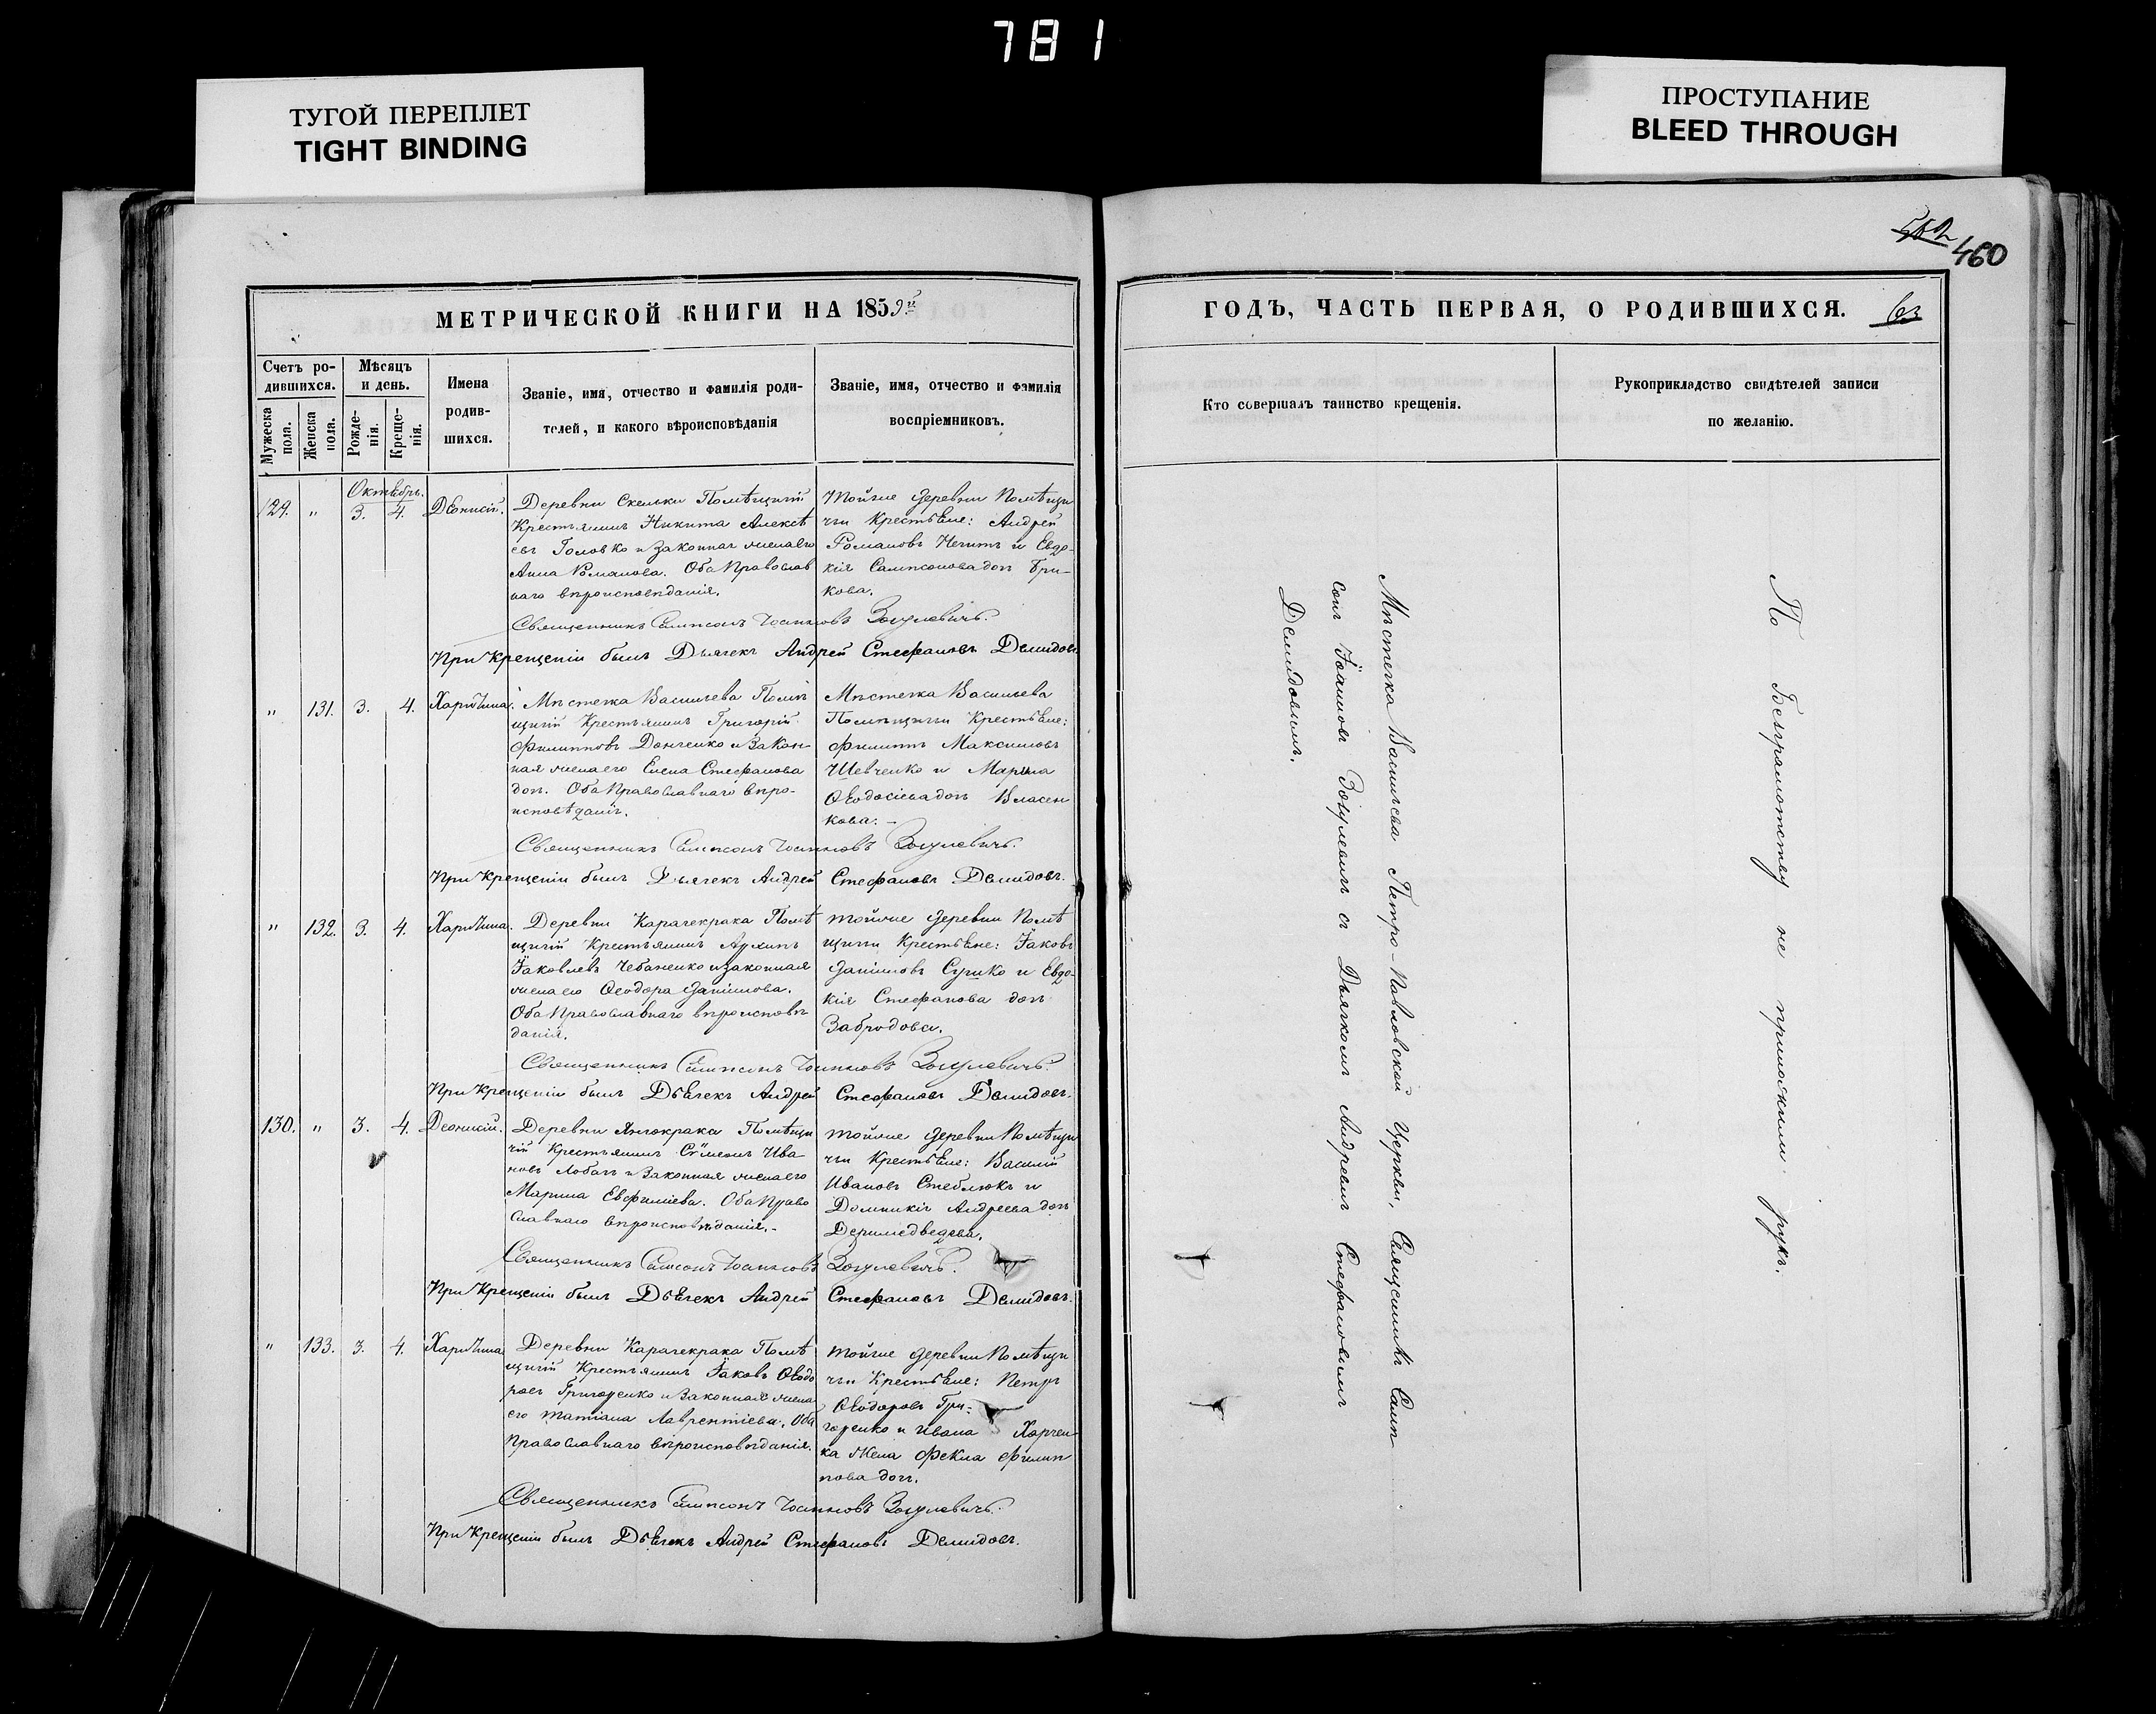 781
ТУГОЙ ПЕРЕПЛЕТ
TIGHT BINDING
ПРОСТУПАНИЕ
BLEED THROUGH
460
МЕТРИЧЕСКОЙ КНИГИ НА 1859й
Счетъ ро-
дившихся.
Мужеска
пола.
Женска
пола.
Мѣсяцъ
и день.
Рожде-
нія.
Креще-
нія.
Имена
родив-
шихся.
Званіе, имя, отчество и фамилія роди-
телей, и какого вѣроисповѣданія
Званіе, имя, отчество и фамилія
воспріемниковъ.
Октябрь.
129. „ 3. 4. Діонисій.
Деревни Скельки Помѣщичій
Крестьянинъ Никита Алексѣ
евъ Головко и законная жена его
Анна Романова. Оба Православ
наго вѣроисповѣданія.
Тойже деревни Помѣщи
чьи Крестьяне: Андрей
Романовъ и Евдо-
кія Сампсонова дочь
кова.
Священникъ Сампсонъ Іоанновъ Зогулевичъ.
При Крещеніи былъ Дьячекъ Андрей Стефановъ Демидовъ.
„ 131. 3. 4. Харитина.
Мѣстечка Васильева Помѣ
щичій Крестьянинъ Григорій
Филипповъ Донченко и Закон-
ная жена его Елена Стефанова
доч. Оба Православнаго вѣро-
исповѣданія.
Мѣстечка Васильева
Помѣщичьи Крестьяне:
Филиппъ Максимовъ
Шевченко и Марина
Ѳеодосіева дочь Власен
кова.-
Священникъ Сампсонъ Іоанновъ Зогулевичъ.
При Крещеніи былъ Дьячекъ Андрей Стефановъ Демидовъ.
„ 132. 3. 4. Харитина.
Деревни Карачекрака Помѣ
щичій Крестьянинъ Архипъ
Яковлевъ Чебаненко и законная
жена его Ѳеодора Даніилова.
Оба Православнаго вѣроисповѣ
данія.
Тойже деревни Помѣ
щичьи Крестьяне: Яковъ
Даніиловъ и Евдо-
кія Стефанова доч.
Забродова.
Священникъ Сампсонъ Іоанновъ Зогулевичъ.
При Крещеніи былъ Дьячекъ Андрей Стефановъ Демидовъ.
130. „ 3. 4. Діонисій.
Деревни Янчокрака Помѣщи
чій Крестьянинъ Сѵмеонъ Ива
новъ Лобачъ и Законная жена его
Марина Евфиміева. Оба Право
славнаго вѣроисповѣданія.-
Тойже деревни Помѣщи
чьи Крестьяне: Василій
Ивановъ Стеблюкъ и
Домникія Андреева доч.
Деримедведева.
Священникъ Сампсонъ Іоанновъ Зогулевичъ.
При Крещеніи былъ Дьячекъ Андрей Стефановъ Демидовъ.
„ 133. 3. 4. Харитина
Деревни Карачекрака Помѣ
щичій Крестьянинъ Яковъ Ѳеодо
ровъ Григоренко и Законная жена
его Татіана Лаврентіева. Оба
Православнаго вѣроисповѣданія.
Тойже деревни Помѣщи
чьи Крестьяне: Петръ
Ѳеодоровъ Гри-
горенко и Ивана Харчен
ка Жена Фекла Филип
пова доч.
Священникъ Сампсонъ Іоанновъ Зогулевичъ.
При Крещеніи былъ Дьячекъ Андрей Стефановъ Демидовъ.
ГОДЪ, ЧАСТЬ ПЕРВАЯ, О РОДИВШИХСЯ. 63
Кто совершалъ таинство крещенія.
Рукоприкладство свидѣтелей записи
по желанію.
Мѣстечка Васильева Петро-Павловской Церкви, Священникъ Самп
сонъ Іоанновъ Зогулевичъ съ Дьячкомъ Андреемъ Стефановымъ
Демидовымъ.
По Безграмотству не приложили рукъ.